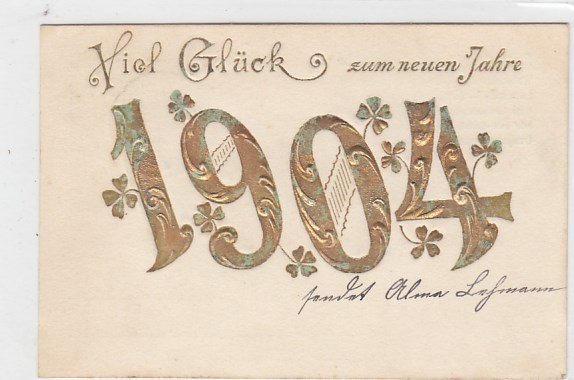 Viel Glück zum neuen Jahre
1904
sendet Alma Lehmann